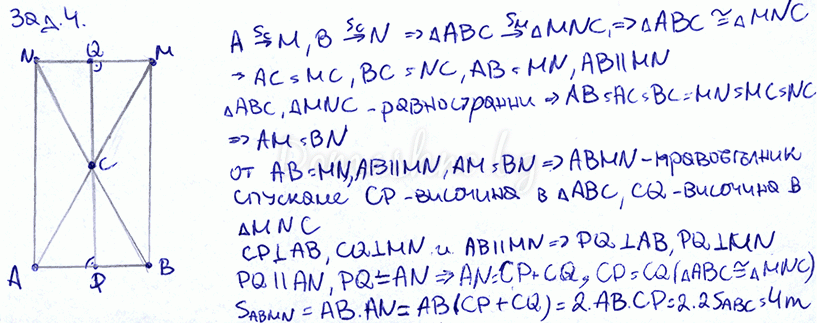 Зад.4.
N Q M
C
A P B
A S_C→ M, B S_C→ N ⇒ △ABC S_M→ △MNC, ⇒ △ABC ≅ △MNC
→ AC = MC, BC = NC, AB = MN, AB ∥ MN
△ABC, △MNC - равностранни ⇒ AB = AC = BC = MN = MC = NC
⇒ AM = BN
от AB = MN, AB ∥ MN, AM = BN ⇒ ABMN - правоъгълник
Спускаме CP - височина в △ABC, CQ - височина в
△MNC
CP ⊥ AB, CQ ⊥ MN и AB ∥ MN ⇒ PQ ⊥ AB, PQ ⊥ MN
PQ ∥ AN, PQ = AN ⇒ AN = CP + CQ, CP = CQ (△ABC ≅ △MNC)
S_ABMN = AB.AN = AB(CP + CQ) = 2.AB.CP = 2.2S_ABC = 4m